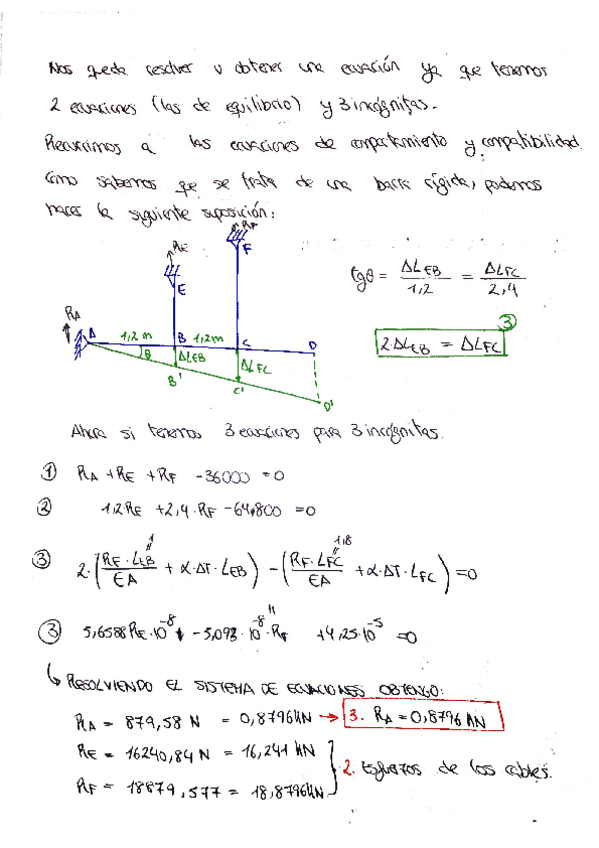 Nos queda resolver u obtener una ecuación ya que tenemos
2 ecuaciones (las de equilibrio) y 3 incógnitas.
Recurrimos a las ecuaciones de comportamiento y compatibilidad.
Como sabemos que se trata de una barra rígida, podemos
hacer la siguiente suposición:
RF
RE
F
E
RA
A 1,2 m B 1,2 m C D
θ ΔLEB ΔLFC
B'
C'
D'
tgθ = ΔLEB / 1,2 = ΔLFC / 2,4
③
2·ΔLEB = ΔLFC
Ahora si tenemos 3 ecuaciones para 3 incógnitas.
① RA + RE + RF - 36000 = 0
② 1,2·RE + 2,4·RF - 64,800 = 0
1 1,8
③ 2·(RE·LEB / EA + α·ΔT·LEB) - (RF·LFC / EA + α·ΔT·LFC) = 0
③ 5,6588 RE·10⁻⁸ - 5,093·10⁻⁸·RF + 4,25·10⁻⁵ = 0
↳ RESOLVIENDO EL SISTEMA DE ECUACIONES OBTENGO:
RA = 879,58 N = 0,8796 kN → 3. RA = 0,8796 kN
RE = 16240,84 N = 16,241 kN
2. Esfuerzos de los cables.
RF = 18879,577 = 18,8796 kN